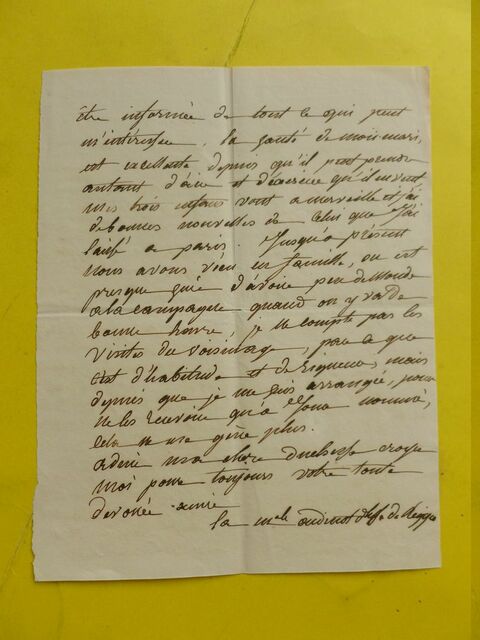 être informée de tout ce qui peut
m'intéresser, la santé de mon mari,
est excellente depuis qu'il peut prendre
autant d'air et d'exercice qu'il en veut
mes trois enfans vont a merveille et j'ai
de bonnes nouvelles de celui que j'ai
laissé a paris. Jusqu'a présent
nous avons vécu en famille, on est
presque guère d'avoir peu de monde
a la campagne quand on y va de
bonne heure, je ne compte pas les
visites du voisinage, parce que
c'est d'habitude et de rigueur, mais
depuis que je me suis arrangée, pour
ne les recevoir qu'a jour nommé,
cela ne me gêne plus.
adieu ma chere duchesse croyez
moi pour toujours votre toute
devouée amie
la male oudinot dsse de Reggio